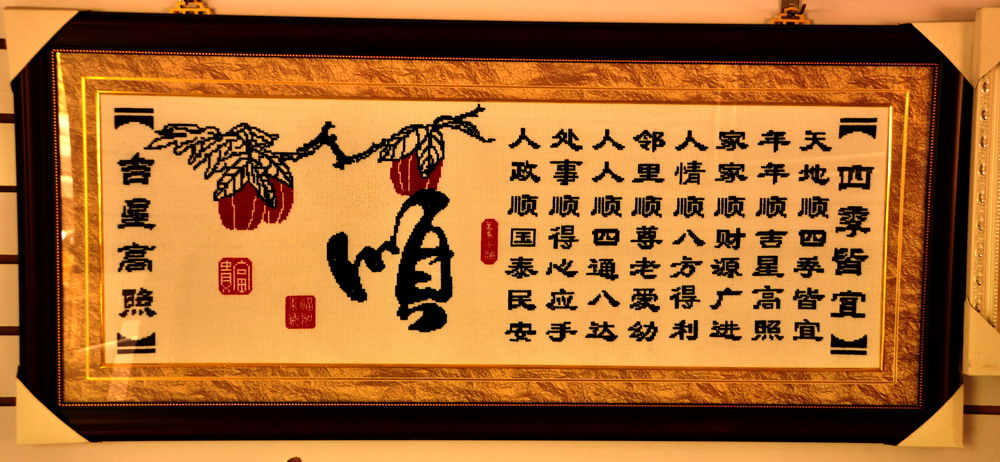 四季皆宜
天地顺四季皆宜
年年顺吉星高照
家家顺财源广进
人情顺八方得利
邻里顺尊老爱幼
人人顺四通八达
处事顺得心应手
人政顺国泰民安
順
富貴
吉星高照